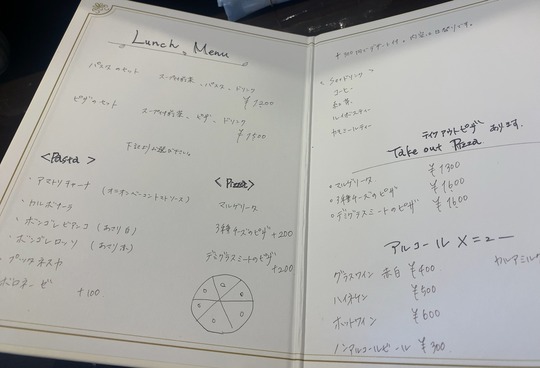 Lunch Menu
パスタのセット スープ、前菜、パスタ、ドリンク
¥1200
ピザのセット スープ、前菜、ピザ、ドリンク
¥1500
下記よりお選び下さい。
<Pasta>
・アマトリチャーナ (オニオンベーコントマトソース)
・カルボナーラ
・ボンゴレビアンコ (あさり白)
・ボンゴレロッソ (あさり赤)
・プッタネスカ
ボロネーゼ +100
<Pizza>
マルゲリータ
3種チーズのピザ +200
デミグラスミートのピザ
+200
コーヒー
紅茶
ルイボスティー
カモミールティー
テイクアウトピザ
Take out Pizza あります。
・マルゲリータ ¥1300
・3種チーズのピザ ¥1600
・デミグラスミートのピザ ¥1600
アルコールメニュー
グラスワイン 赤白 ¥400
ハイネケン ¥500
ホットワイン ¥600
ノンアルコールビール ¥300